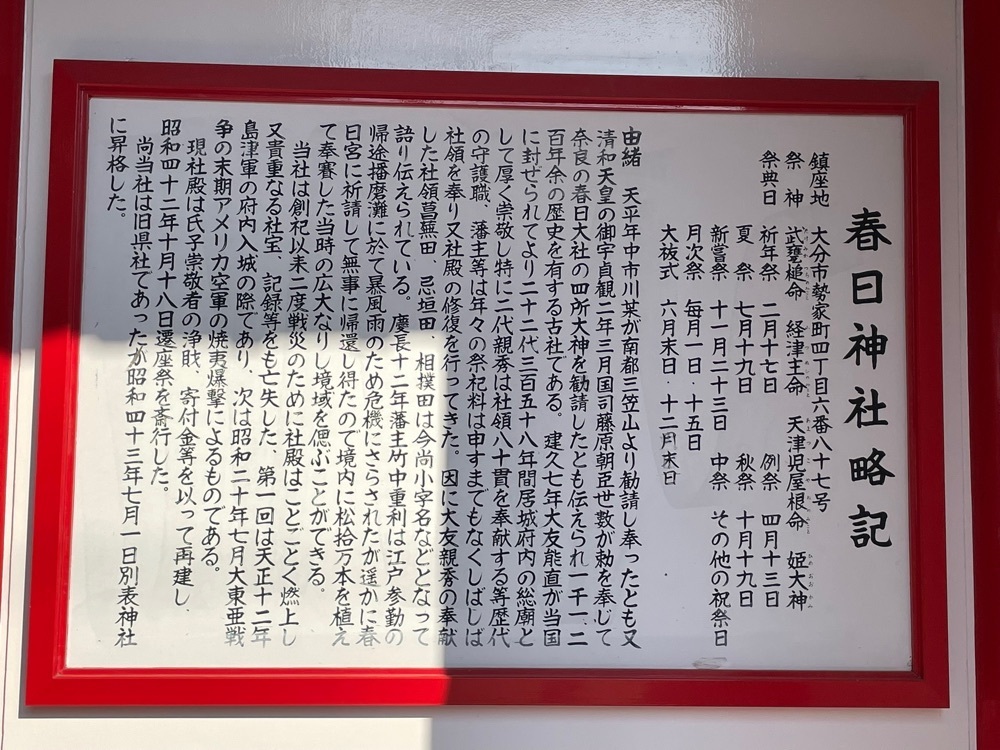 春日神社略記
鎮座地　大分市勢家町四丁目六番八十七号
祭神　武甕槌命　経津主命　天津児屋根命　姫大神
祭典日　祈年祭　二月十七日　例祭　四月十三日
夏祭　七月十九日　秋祭　十月十九日
新嘗祭　十一月二十三日　中祭　その他の祝祭日
月次祭　毎月一日・十五日
大祓式　六月末日・十二月末日
由緒　天平年中市川某が南都三笠山より勧請し奉ったとも又
清和天皇の御宇貞観二年三月国司藤原朝臣世数が勅を奉じて
奈良の春日大社の四所大神を勧請したとも伝えられ一千一、二
百年余の歴史を有する古社である。建久七年大友能直が当国
に封ぜられてより二十二代三百五十八年間居城府内の総廟と
して厚く崇敬し特に二代親秀は社領八十貫を奉献する等歴代
の守護職、藩主等は年々の祭祀料は申すまでもなくしばしば
社領を奉り又社殿の修復を行ってきた。因に大友親秀の奉献
した社領菖蕪田　忌垣田　相撲田は今尚小字名などとなって
語り伝えられている。慶長十二年藩主竹中重利は江戸参勤の
帰途播磨灘に於て暴風雨のため危機にさらされたが遥かに春
日宮に祈請して無事に帰還し得たので境内に松拾万本を植え
て奉賽した当時の広大なりし境域を偲ぶことができる。
当社は創祀以来二度戦災のために社殿はことごとく燃上し
又貴重なる社宝、記録等をも亡失した、第一回は天正十二年
島津軍の府内入城の際であり、次は昭和二十年七月大東亜戦
争の末期アメリカ空軍の焼夷爆撃によるものである。
現社殿は氏子崇敬者の浄財、寄付金等を以って再建し、
昭和四十二年十月十八日遷座祭を斎行した。
尚当社は旧県社であったが昭和四十三年七月一日別表神社
に昇格した。